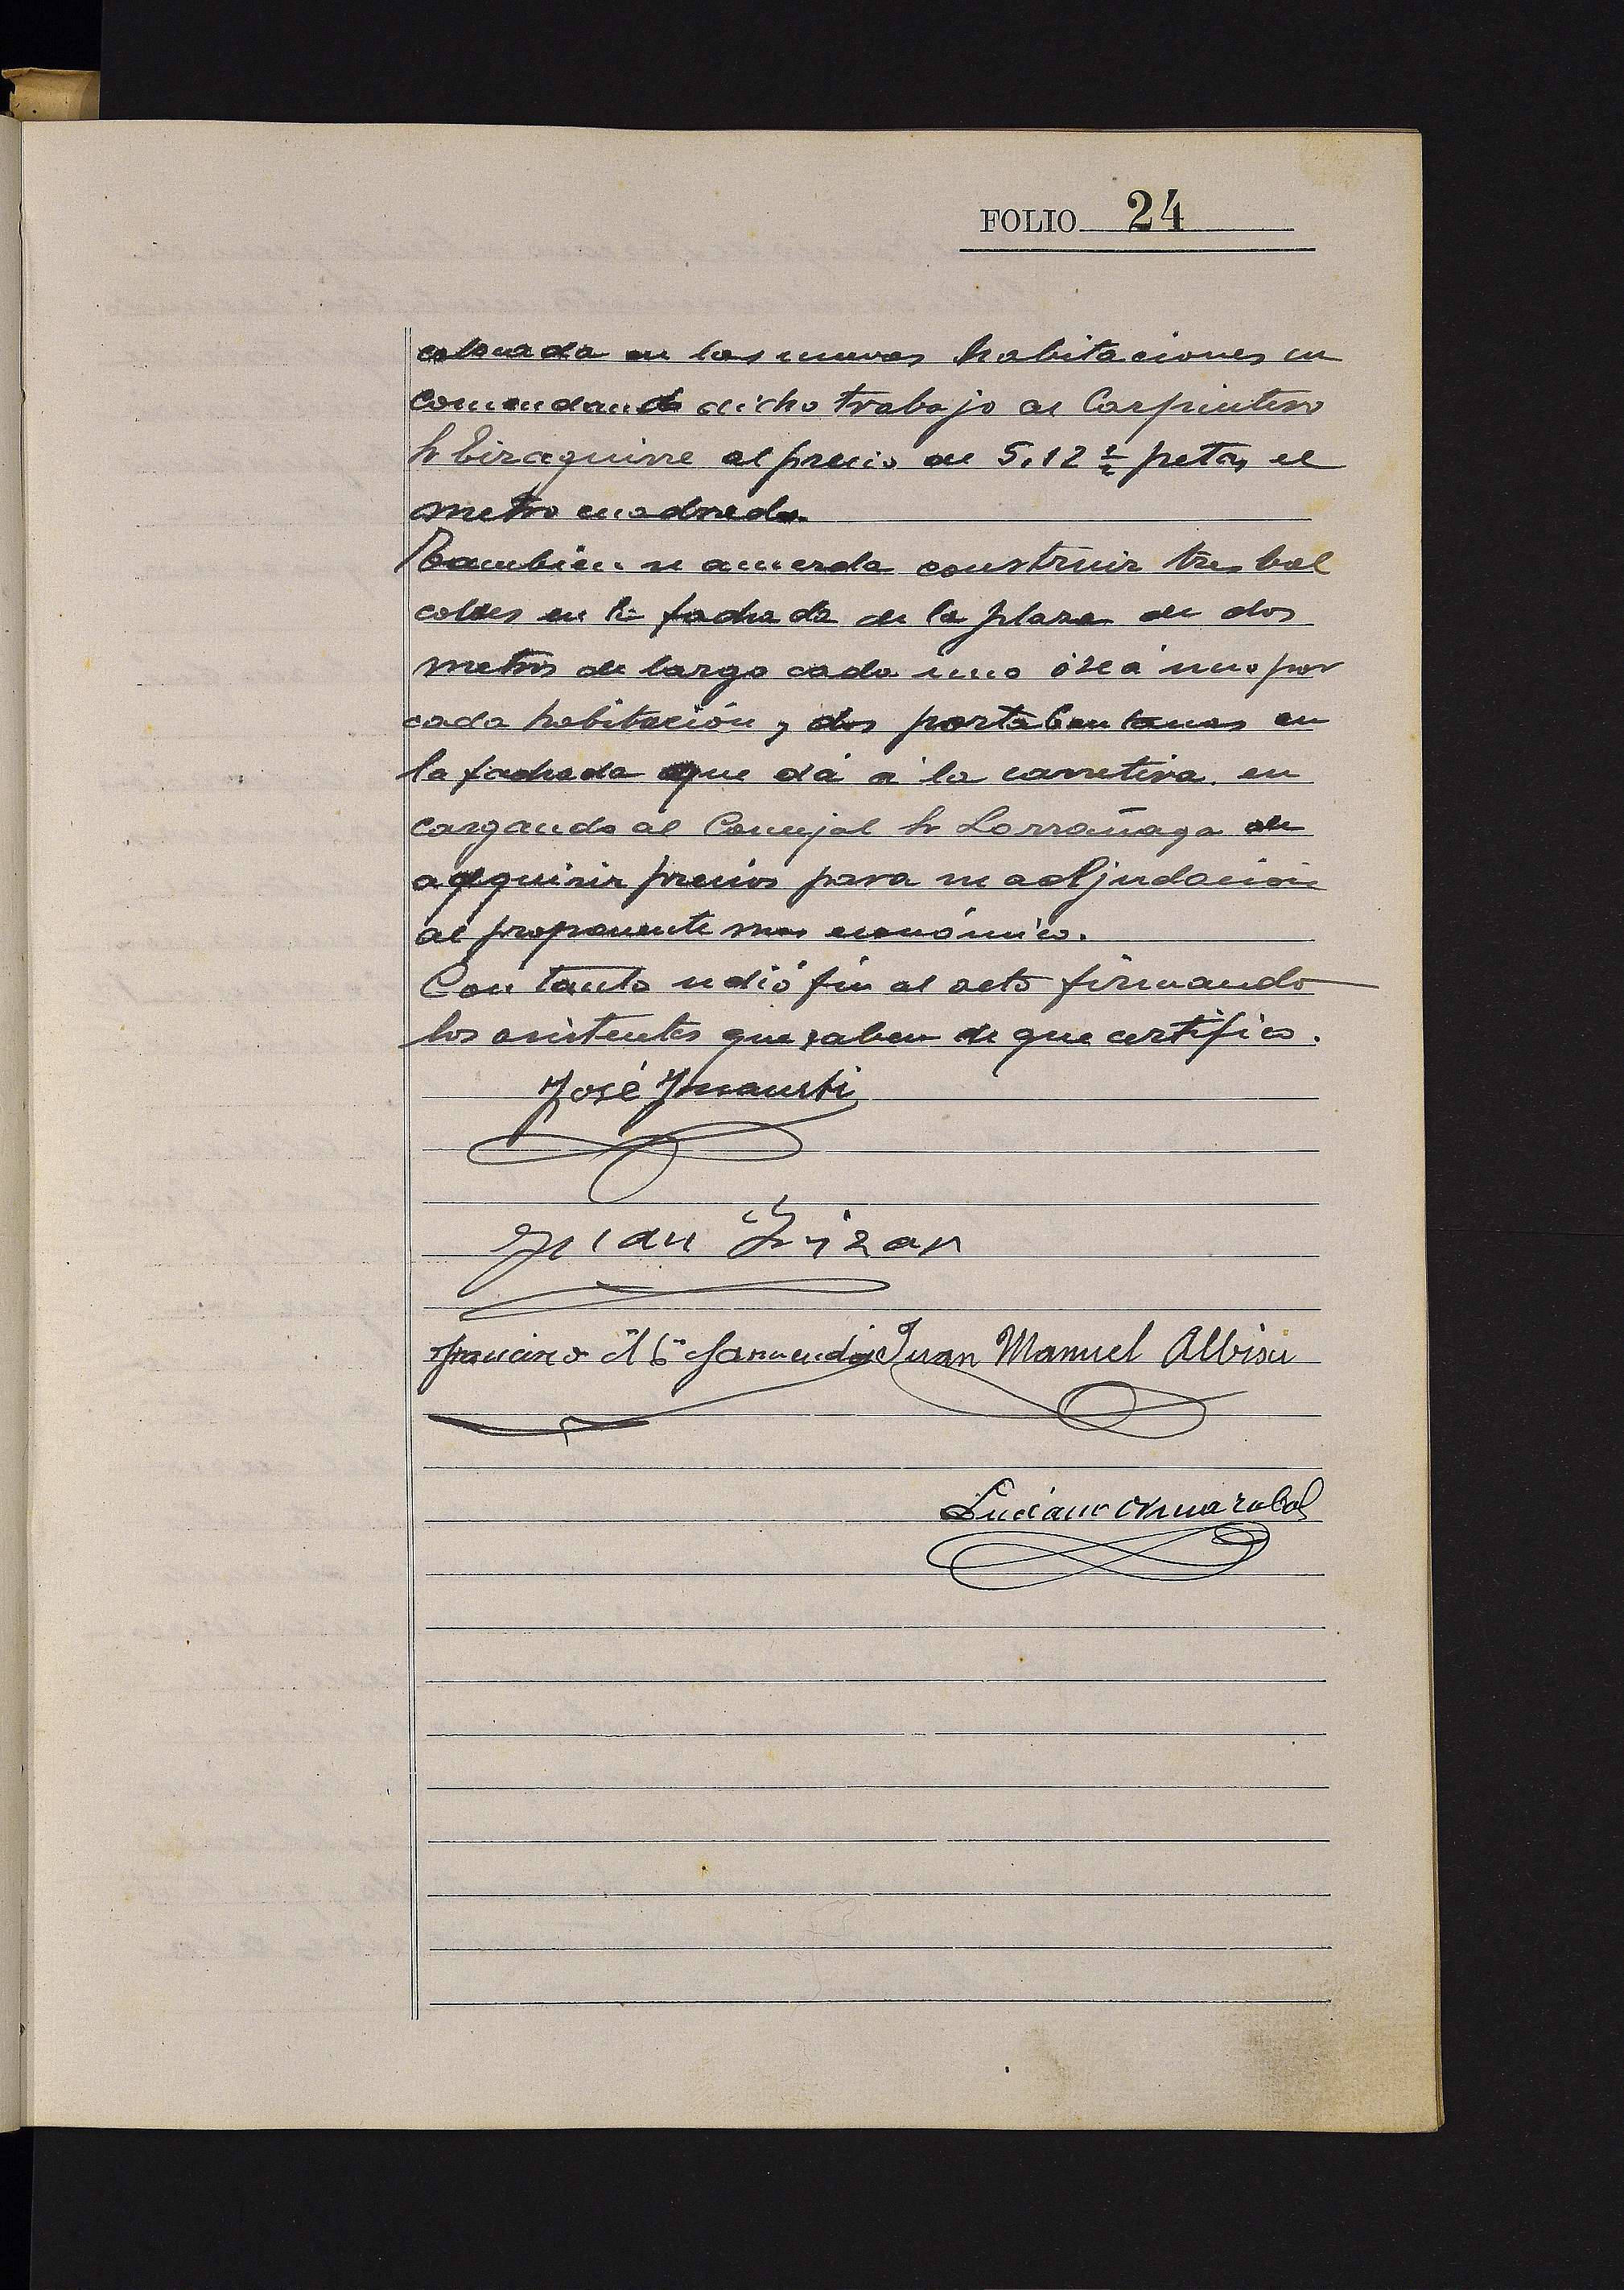 FOLIO 24
colocada en las nuevas habitaciones en
comendando dicho trabajo al Carpintero
Sr Eizaguirre al precio de 5,12 ½ petas el
metro cuadrado.
Tambien se acuerda construir tres bal
cones en la fachada de la plaza de dos
metros de largo cada uno ó sea uno por
cada habitación y dos portabentanas en
la fachada que dá á la carretera en
cargando al Concejal Sr Larrañaga de
adquirir precios para su adjudación
al proponente mas económico.
Con tanto se dió fin al acto firmando
los asistentes que saben de que certifico.
José Insausti
Juan
Francisco Mª Garmendia Juan Manuel Albisu
Luciano